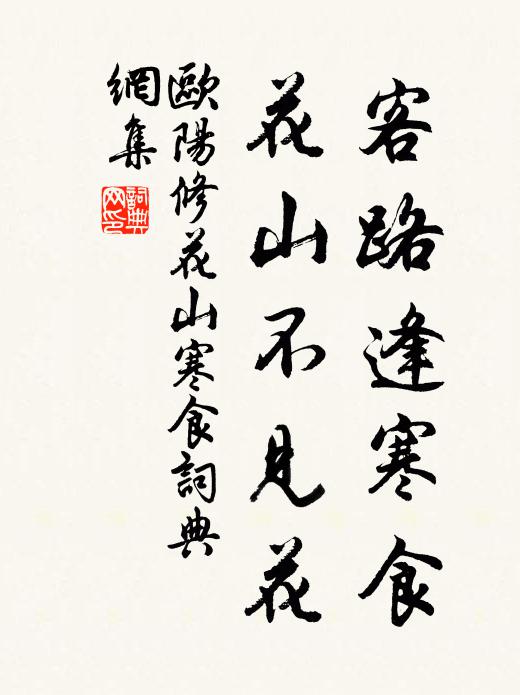 客路逢寒食
花山不見花
歐陽修花山寒食詞典
網集
詞典
网印